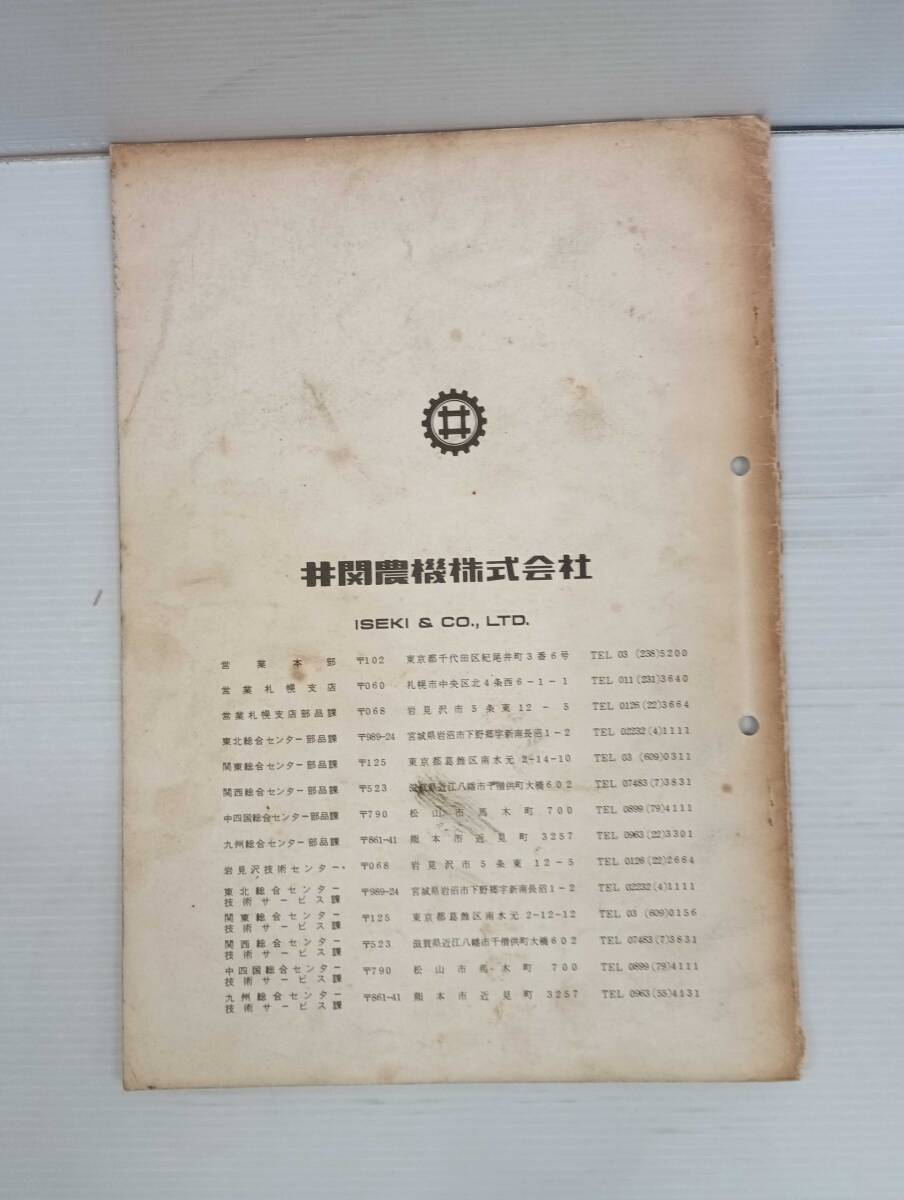 井
井関農機株式会社
ISEKI & CO., LTD.
営業本部 〒102 東京都千代田区紀尾井町3番6号 TEL 03 (238)5200
営業札幌支店 〒060 札幌市中央区北4条西6-1-1 TEL 011 (231)3640
営業札幌支店部品課 〒068 岩見沢市5条東12-5 TEL 0126 (22)3664
東北総合センター部品課 〒989-24 宮城県岩沼市下野郷字新南長沼1-2 TEL 02232 (4)1111
関東総合センター部品課 〒125 東京都葛飾区南水元 2-14-10 TEL 03 (609)0311
関西総合センター部品課 〒523 滋賀県近江八幡市千僧供町大橋602 TEL 07483 (7)3831
中四国総合センター部品課 〒790 松山市馬木町 700 TEL 0899 (79)4111
九州総合センター部品課 〒861-41 熊本市近見町 3257 TEL 0963 (22)3301
岩見沢技術センター 〒068 岩見沢市5条東12-5 TEL 0126 (22)2664
東北総合センター技術サービス課 〒989-24 宮城県岩沼市下野郷字新南長沼1-2 TEL 02232 (4)1111
関東総合センター技術サービス課 〒125 東京都葛飾区南水元 2-12-12 TEL 03 (609)0156
関西総合センター技術サービス課 〒523 滋賀県近江八幡市千僧供町大橋602 TEL 07483 (7)3831
中四国総合センター技術サービス課 〒790 松山市馬木町 700 TEL 0899 (79)4111
九州総合センター技術サービス課 〒861-41 熊本市近見町 3257 TEL 0963 (55)4131